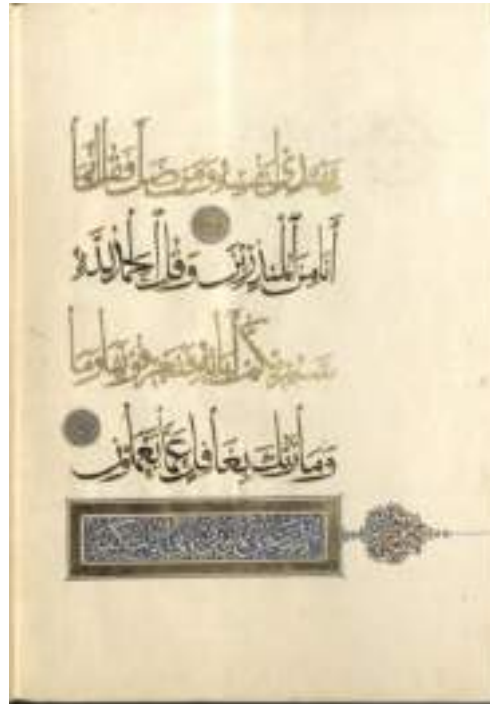 يهتدي لنفسه ومن ضل فقل إنما
أنا من المنذرين وقل الحمد لله
سيريكم آياته فتعرفونها وما
وما ربك بغافل عما تعملون